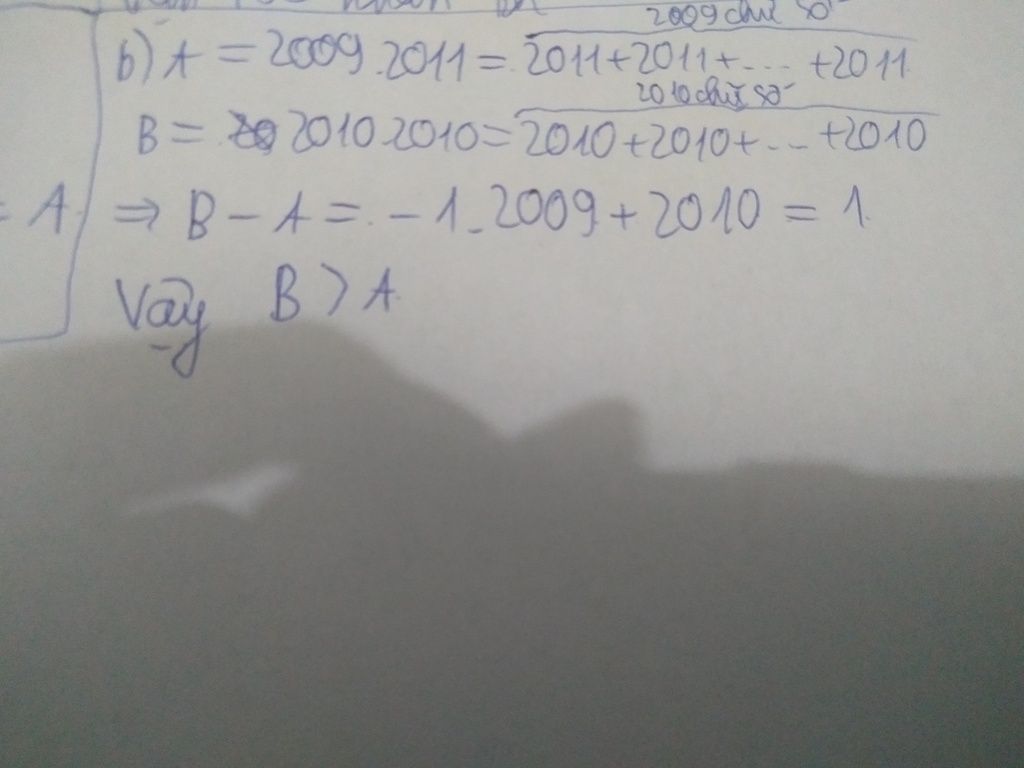 2009 chữ số
b) A = 2009.2011 = 2011+2011+...+2011
2010 chữ số
B = 2010.2010 = 2010+2010+...+2010
= A
⇒ B - A = -1.2009 + 2010 = 1.
Vậy B > A